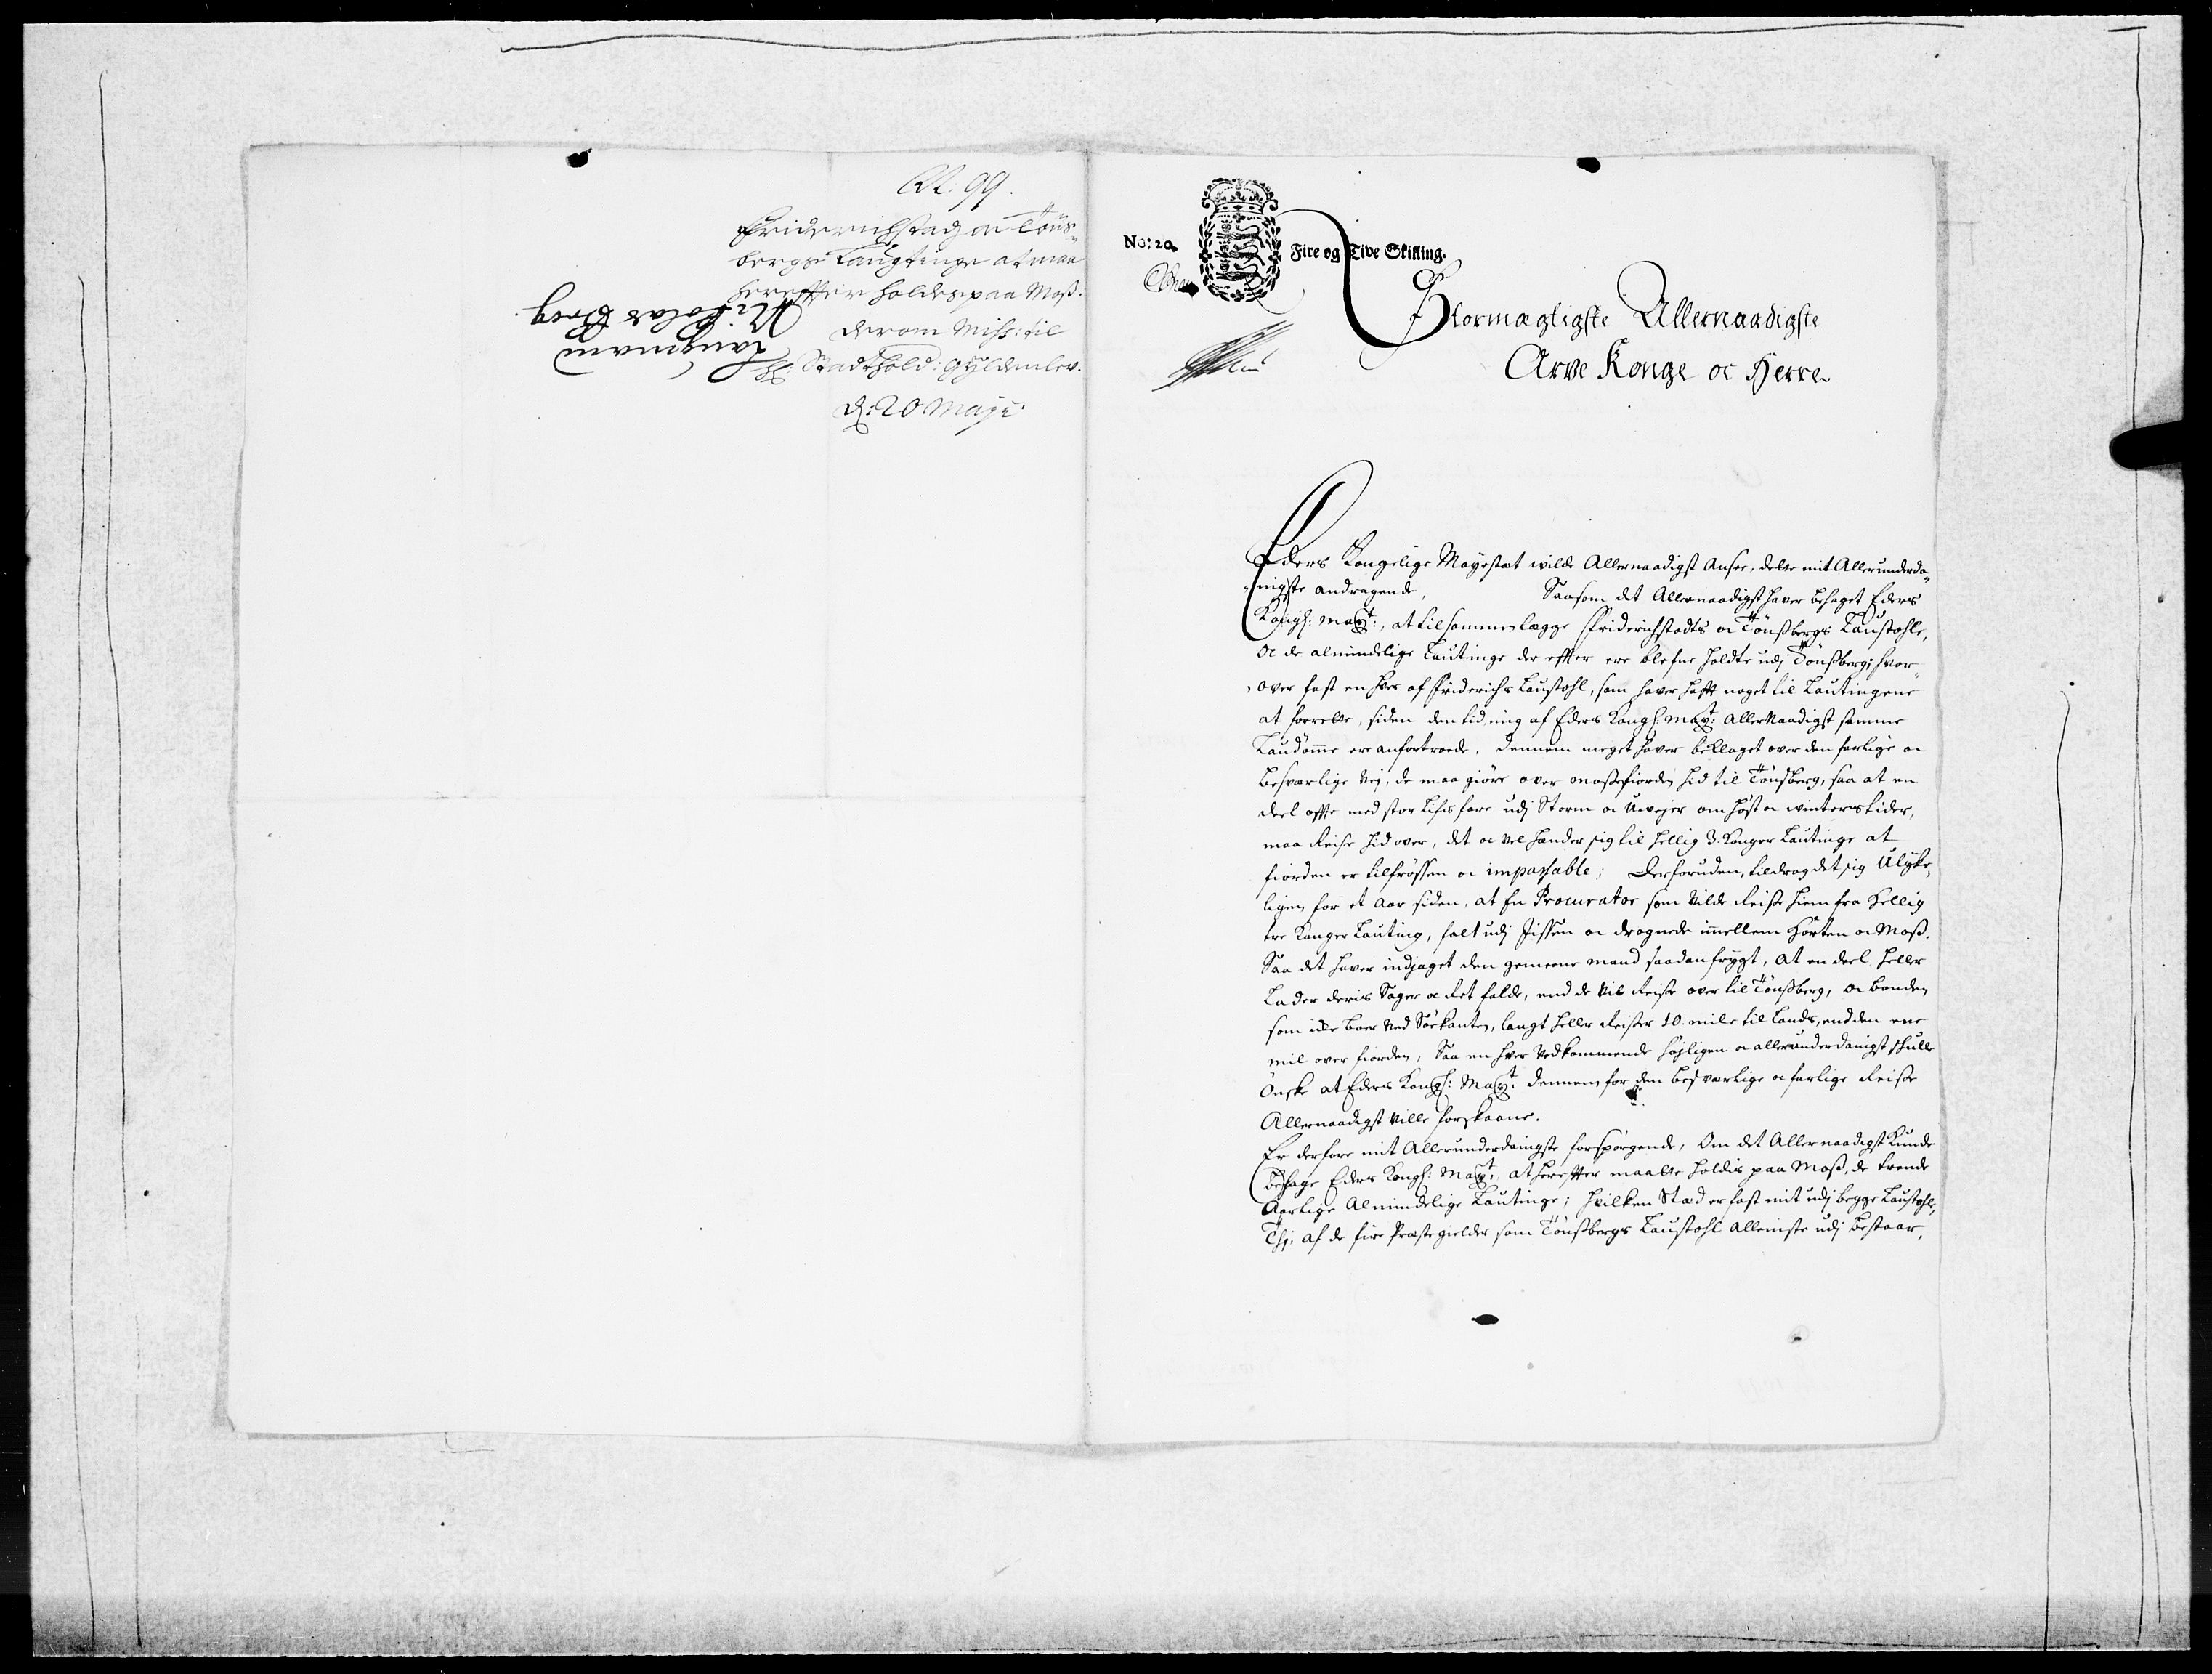 99.
Friderichstad oc Töns-
bergs Laugtinge at maa
hereffter holdes paa Moss.
derom Miss: til
H: Stadthold: Gyldenlev.
d: 20 Maji
Laugmann
Nicolas Berg
No: 20
Fire og Tive Skilling.
Stormægtigste Allernaadigste
Arve Konge oc Herre
Eders Kongelige Mayestæt wilde Allernaadigst Ansee, dette mit Allerunderda-
nigste andragende, Saasom det Allernaadigst haver behaget Eders
Kongl: May:t, at tilsammenlægge Friderichstadts oc Tönßbergs Laustohle,
Oc de almindelige Lautinge der effter ere blefne holdte udj Tönßberg; hvor-
over fast en hver af Friderichs Laustohl, som haver hafft noget til Lautingene
at forrette, siden den tid mig af Eders Kongl: May:t AllerNaadigst samme
Laudömme ere anfortroede, dennem meget haver beklaget over den farlige oc
besværlige Vej, de maa giöre over Mossefiorden hid til Tönsberg, saa at en
deel offte med stor Lifs fare udj Storm oc Uvejer om höst oc vinters tider,
maa Reise hid over, det oc vel hænder sig til hellig 3. Konger Lautinge at
fiorden er tilfrossen oc impassable; Derforuden, tildrog det sig Ulyke-
ligen for et Aar siden, at En Procurator som vilde Reise hiem fra Hellig
tre Konger Lauting, falt udj Jissen oc drognede imellem Horten oc Moss.
Saa det haver indjaget den gemeene mand saadan frygt, At en deel heller
Lader deris Sager oc Ret falde, end de vil Reise over til Tönßberg, Oc bonden
som icke boer ved Söekanten, langt heller Reiser 10. mile til Lands, end den ene
mil over fiorden, Saa en hver Vedkommende höjligen oc allerunderdanigst skulle
Önske at Eders Kongl: May:t dennem for den besværlige oc farlige Reise
Allernaadigst ville forskaane.
Er derfore mit Allerunderdanigste forspörgende, Om det Allernaadigst Kunde
behage Eders Kongl: May:t at hereffter maatte holdis paa Moss, de trende
Aarlige Almindelige Lautinge; hvilken Stæd er fast mit udj begge Laustohle,
Thj. af de fire Præstegielder som Tönßbergs Laustohl Alleniste udj bestaar,